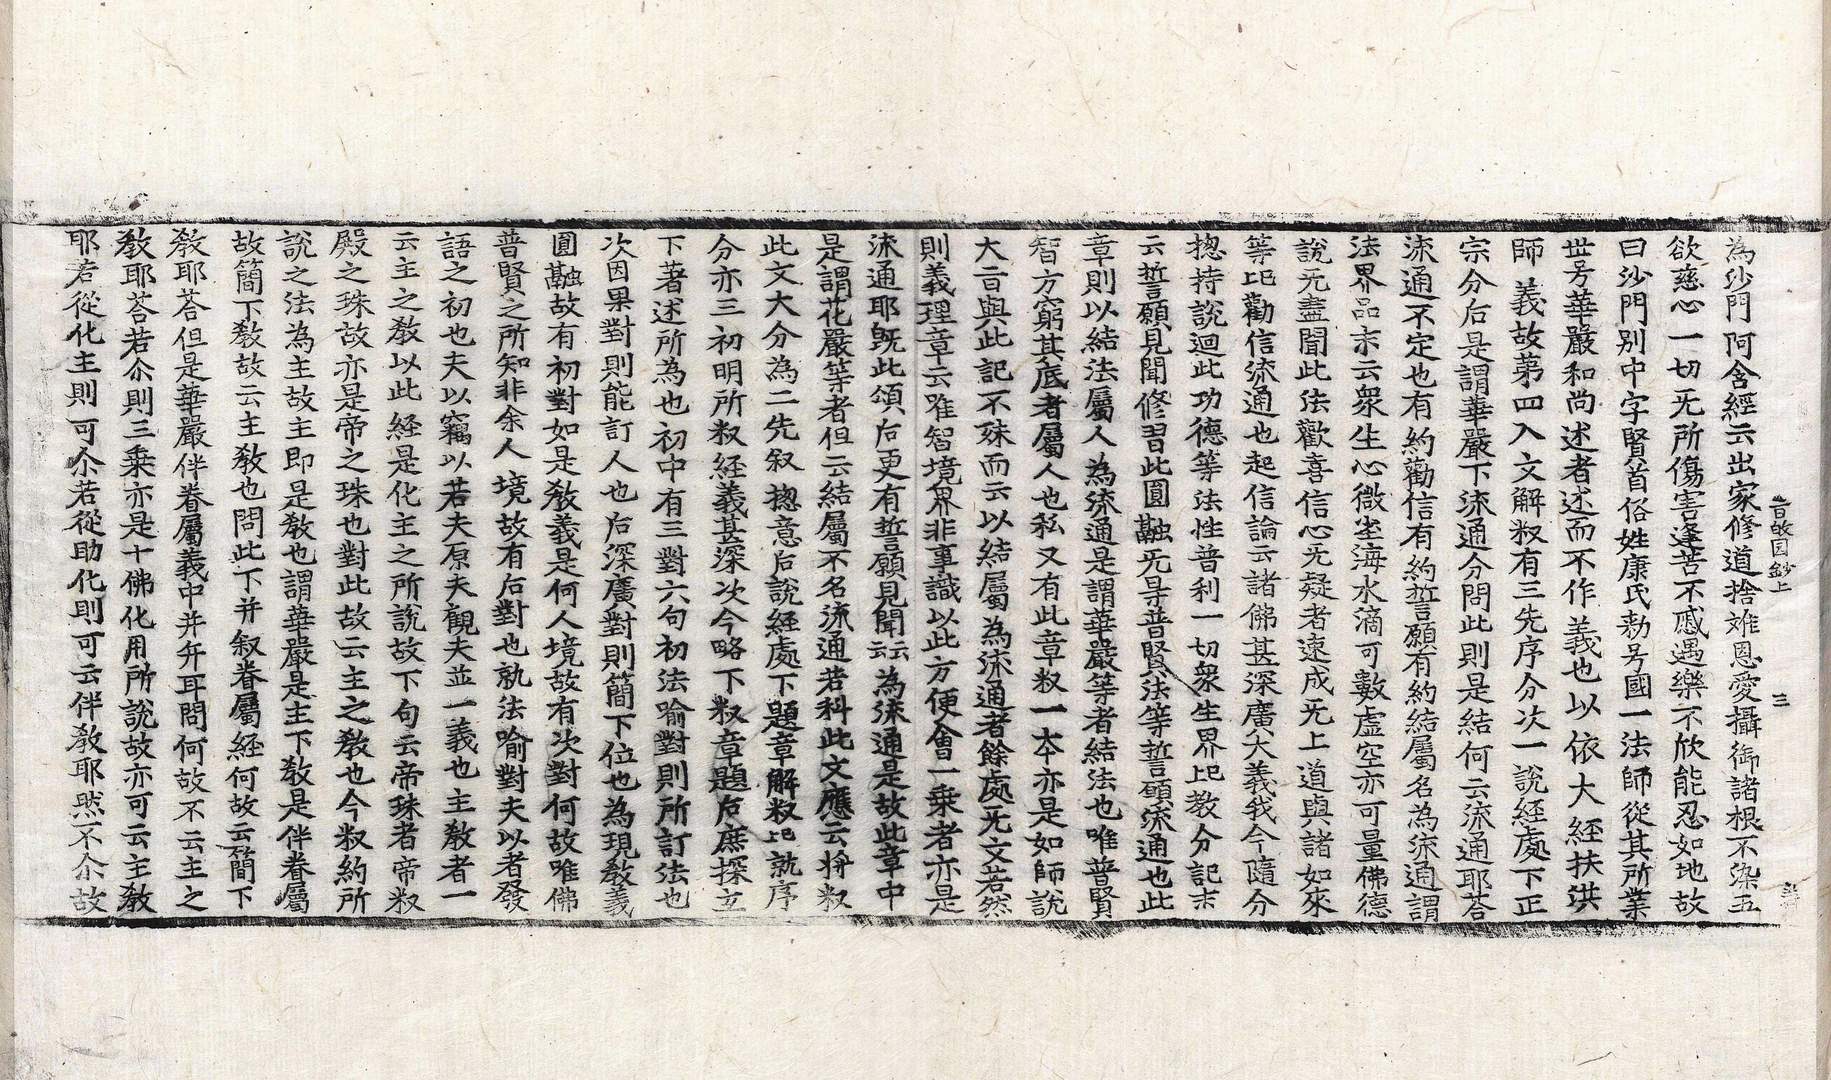 為沙門阿含經云出家修道捨難恩愛攝御諸根不染五
欲慈心一切无所傷害逢苦不慼遇樂不欣能忍如地故
曰沙門别中字賢首俗姓康氏勑号國一法師從其所業
世号華嚴和尚述者述而不作義也以依大經扶洪
師義故第四入文解釈有三先序分次一說經處下正
宗分后是謂華嚴下流通分問此則是結何云流通耶荅
流通不定也有約勸信有約誓願有約結屬名為流通謂
法界品末云衆生心微塵海水滴可數虛空亦可量佛德
說无盡聞此法歡喜信心无疑者速成无上道與諸如來
等比勸信流通也起信論云諸佛甚深廣大義我今隨分
摠持說迴此功德等法性普利一切衆生界比教分記末
云誓願見聞修習此圓融无㝵普賢法等誓願流通也此
章則以結法屬人為流通是謂華嚴等者結法也唯普賢
智方窮其底者屬人也私又有此章釈一本亦是如師說
大旨與此記不殊而云以結屬為流通者餘處无文若然
則義理章云唯智境界非事識以此方便會一乗者亦是
流通耶旣此頌后更有誓願見聞云云為流通是故此章中
是謂花嚴等者但云結屬不名流通若科此文應云将釈
此文大分為二先叙摠意后說經處下題章解釈比就序
分亦三初明所釈經義甚深次今略下釈章題后庶探玄
下著述所為也初中有三對六句初法喻對則所訂法也
次因果對則能訂人也后深廣對則簡下位也為現教義
圓融故有初對如是教義是何人境故有次對何故唯佛
普賢之所知非余人境故有后對也就法喻對夫以者發
語之初也夫以竊以若夫原夫觀夫並一義也主教者一
云主之教以此經是化主之所說故下句云帝珠者帝釈
殿之珠故亦是帝之珠也對此故云主之教也今釈約所
說之法為主故主即是教也謂華嚴是主下教是伴眷屬
故簡下教故云主教也問此下并叙眷屬經何故云簡下
教耶荅但是華嚴伴眷屬義中并弁耳問何故不云主之
教耶荅若尒則三乗亦是十佛化用所說故亦可云主教
耶若從化主則可尒若從助化則可云伴教耶㸐不尒故
三